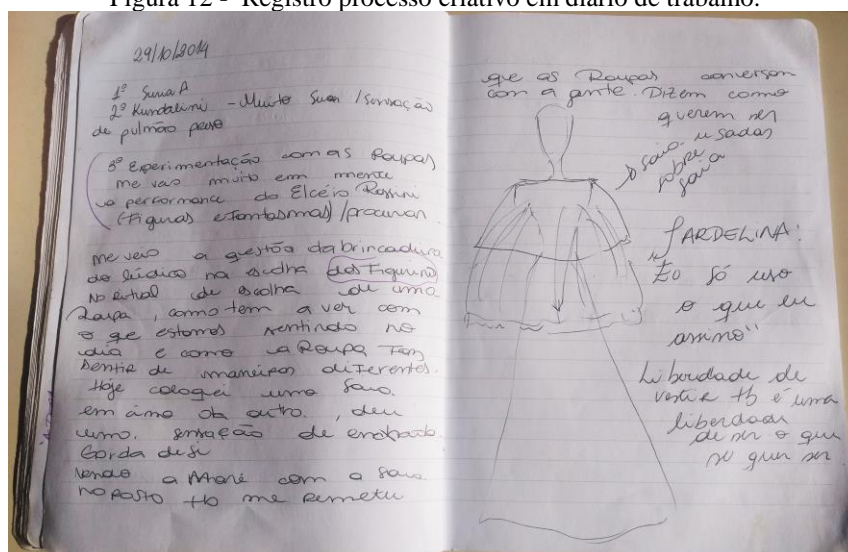 Figura 12 - Registro processo criativo em diário de trabalho.
29/10/2014
1º Suna A
2º Kundalini - Muito Suor / sensação
de pulmão preso
3º Experimentação com as Roupas
me veio muito em mente
a performance do Elcio Rossini
(Figuras e fantasmas) / procurar
me veio a questão da brincadura
do lúdico na escolha dos Figurinos
No ritual de escolha de uma
Roupa, como tem a ver com
o que estamos sentindo no
dia e como a Roupa Faz
Sentir de maneiras diferentes.
Hoje coloquei uma saia
em cima da outra, deu
uma sensação de
Gorda
vendo a com a saia
no rosto tb me remeteu
que as Roupas conversam
com a gente. Dizem como
querem ser
usadas
saia
sobre
saia
JARDELINA:
"Eu só uso
o que eu
assino"
Liberdade de
vestir tb é uma
liberdade
de ser o que
se quer ser